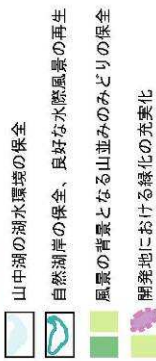 山中湖の湖水環境の保全
自然湖岸の保全、良好な水際風景の再生
風景の背景となる山並みのみどりの保全
開発地における緑化の充実化